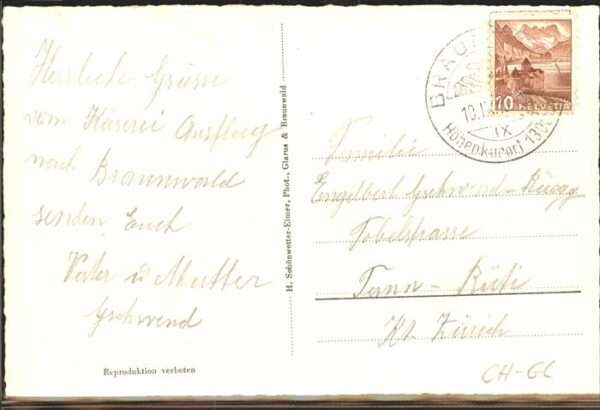 Herzliche Grüsse
vom Käserei Ausflug
nach Braunwald
senden Euch
Vater u Mutter
Gschwend
Reproduktion verboten
H. Schönwetter-Elmer, Phot., Glarus & Braunwald
BRAUN
10.IX
Höhenkurort 13
10 HELVETIA
Familie
Engelbert Gschwend-Rüegg
Tobelstrasse
Tann-Rüti
Kt. Zürich
CH-GL